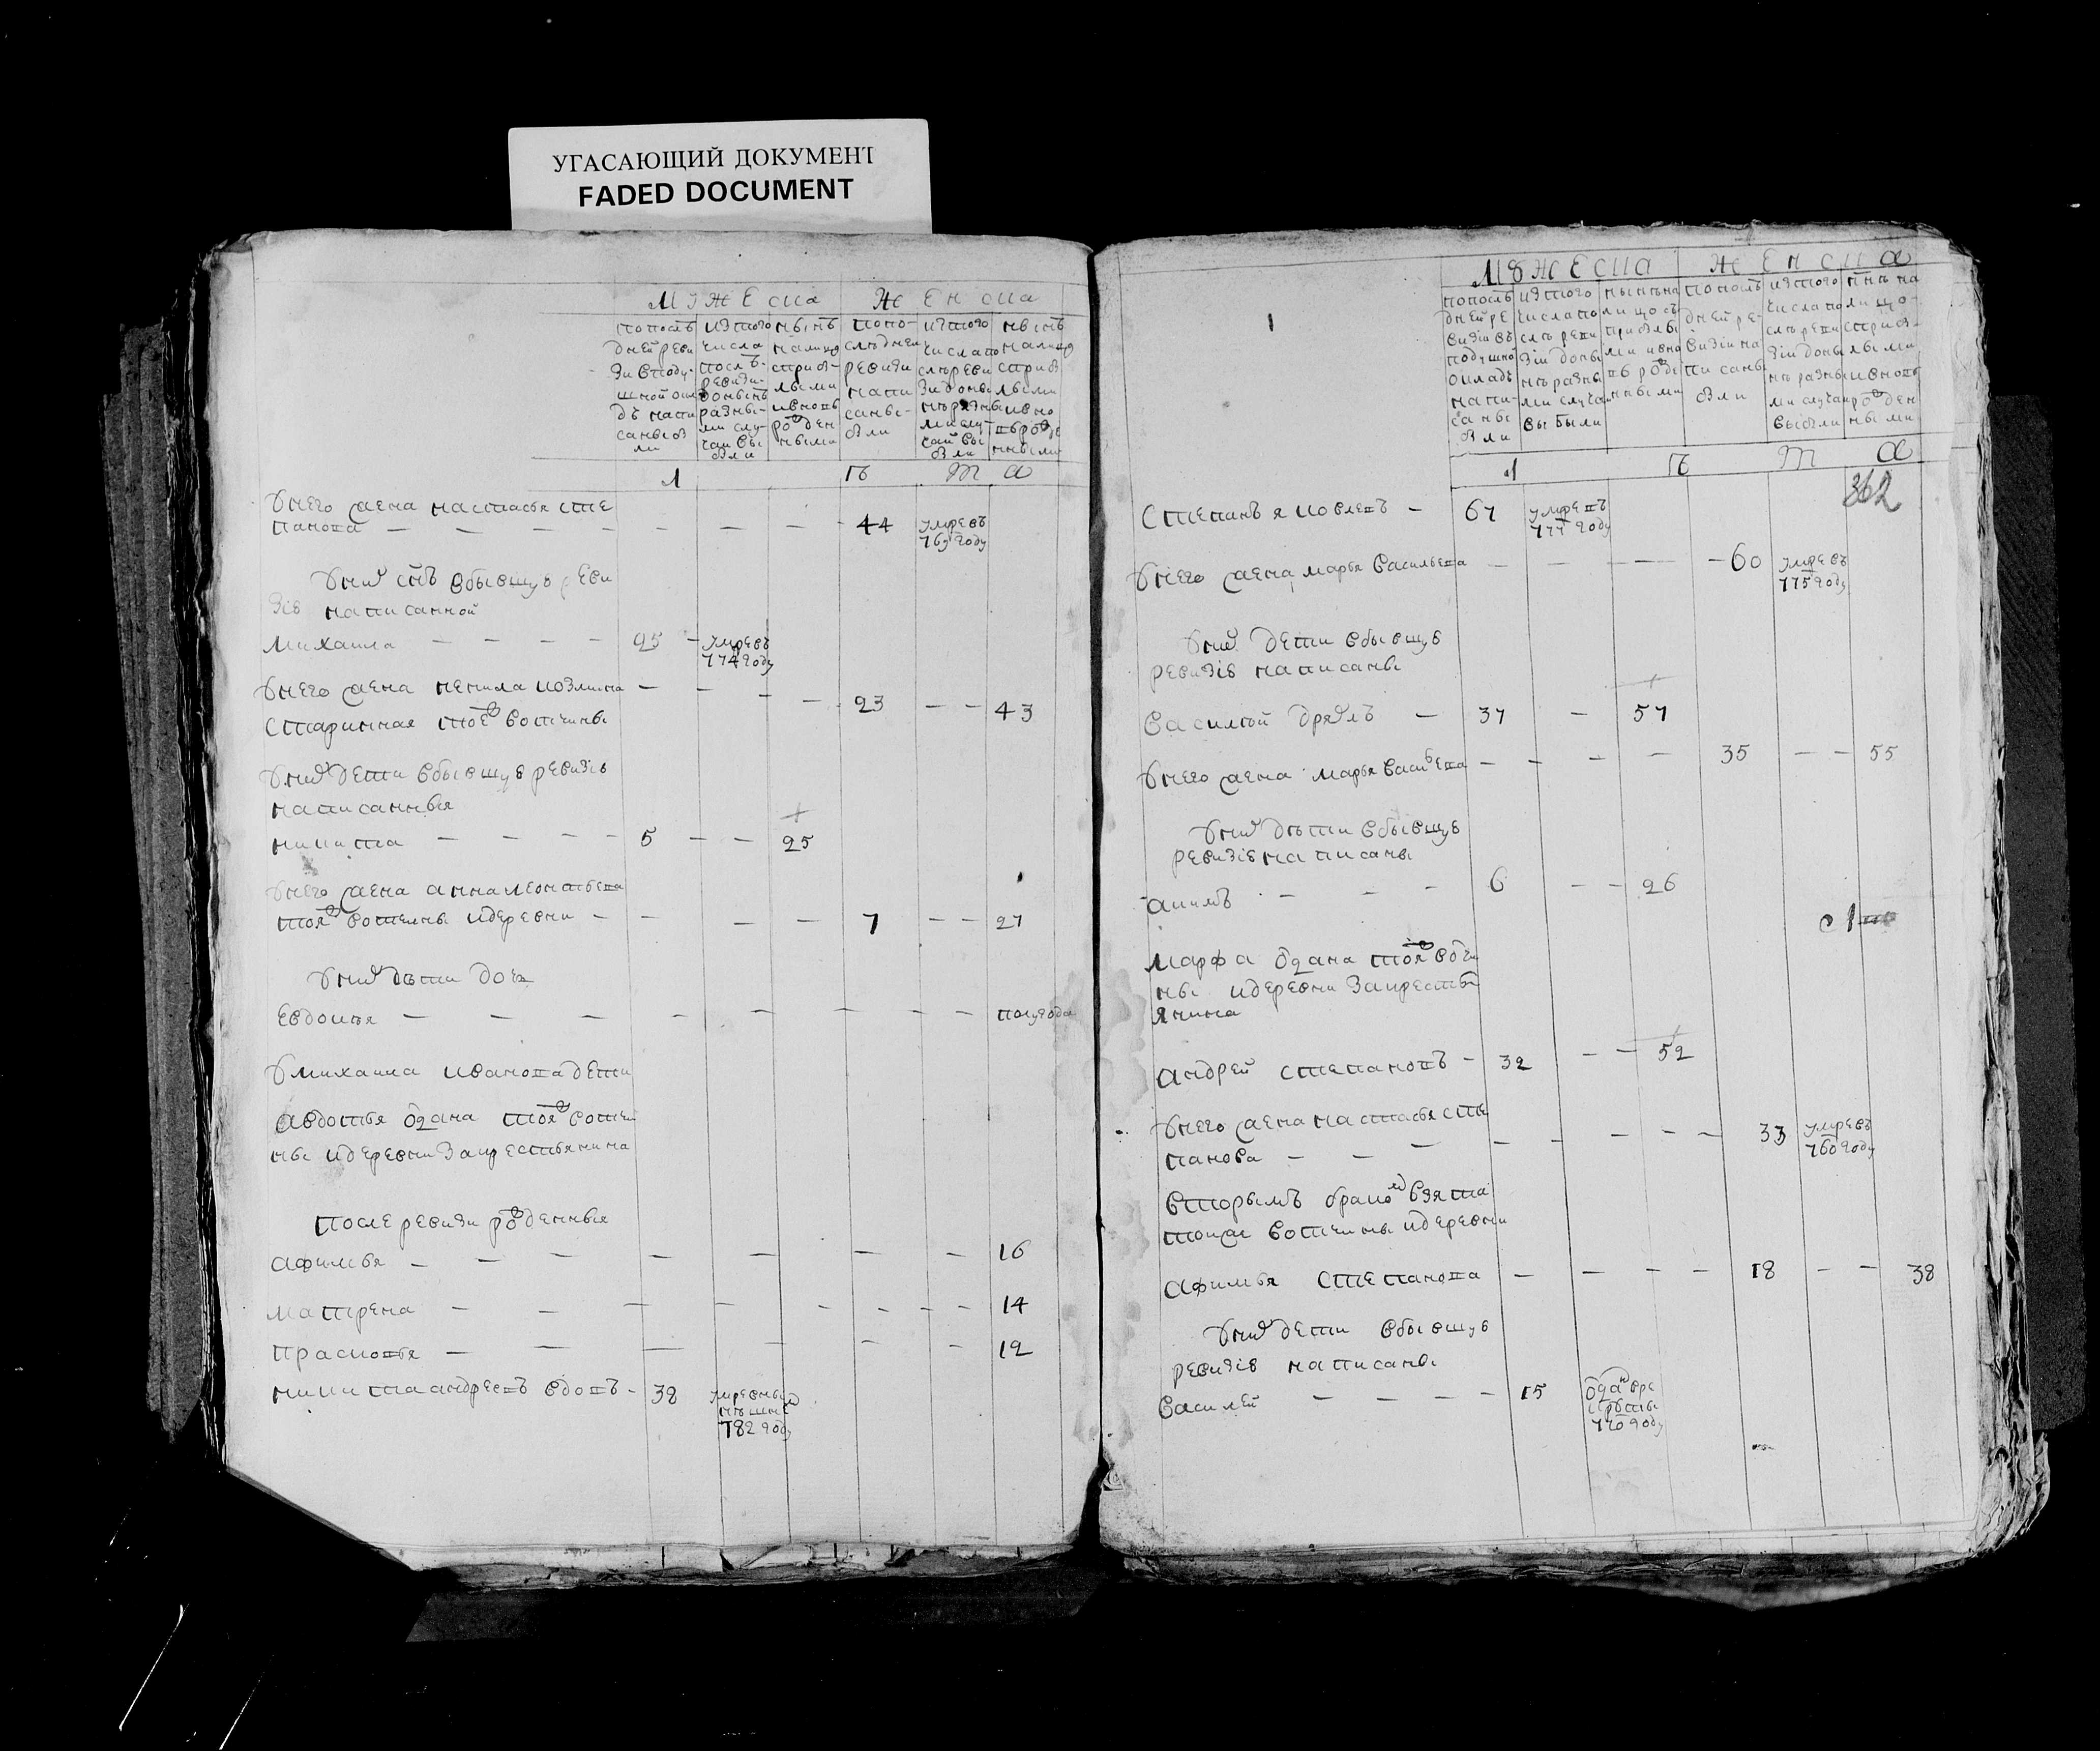 УГАСАЮЩИЙ ДОКУМЕНТ
FADED DOCUMENT
Мужеска Женска
по послѣ
дней реви
зи в поду
шной окла
дѣ напи
саны бы
ли
из того
числа
послѣ
ревизи
до нынѣ
разны
ми слу
чаи вы
были
нынѣ
на лицо
с прибы
лыми
и вновь
рожден
ными
по по
слѣдней
ревизи
напи
саны
были
из того
числа по
слѣ реви
зи до ны
нѣ разны
ми слу
чаи вы
были
нынѣ
на лицо
с прибы
лыми
и вно
вь рожде
нными
л ѣ т а
у него жена настасья сте
панова — — — — — — — — 44 умре въ
769 году
у них снъ в бывшую реви
зiю написанной
михаила — — — — 25 — умре въ
774 году
у него жена ненила козмина — — — — 23 — — 43
старинная тоеж вотчины
у них дети в бывшую ревизiю
написанныя
никита — — — — 5 — — 25
у него жена анна леонтьева
тояж вотчины и деревни — — — — 7 — — 27
у них дѣти дочь
Евдокѣя — — — — — — — — — полугода
у михаила иванова дети
авдотья одана тояж вотчи
ны и деревни за крестьянина
после ревизи рожденныя
афимья — — — — — — — 16
матрена — — — — — — — — 14
прасковья — — — — — — 12
никита андреевъ вдовъ — 38 умре въ ны
нѣшнем
782 году
Мужеска Женска
по послѣ
дней ре
визiи въ
подушно
окладѣ
напи
саны
были
из того
числа по
слѣ реви
зiи до ны
нѣ разны
ми случаи
выбыли
нынѣ на
лицо съ
прибылы
ми и вно
вь рожде
нными
по послѣ
дней ре
визiи на
писаны
были
из того
числа по
слѣ реви
зiи до ны
нѣ разны
ми случаи
выбыли
ннѣ на
лицо
с прибы
лыми
и вновь
рожден
ными
л ѣ т а
362
степанъ яковлевъ — 67 умре въ
777 году
у него жена марья васильева — — — — 60 умре въ
775 году
у них дети в бывшую
ревизiю написаны
василѣй дряблъ — 37 — 57
у него жена марья васильева — — — — 35 — — 55
у них дѣти в бывшую
ревизiю написаны
акимъ — — — 6 — — 26
марфа одана тояж вотчи
ны и деревни за крестья
янина
андрей степановъ — 32 — — 52
у него жена настасья сте
панова — — — — — — — — 33 умре въ
760 году
вторымъ браком взята
тоеже вотчины и деревни
афимья степанова — — — — 18 — — 38
у них дети в бывшую
ревизiю написаны
василей — — — — 15 одан в ре
круты
770 году